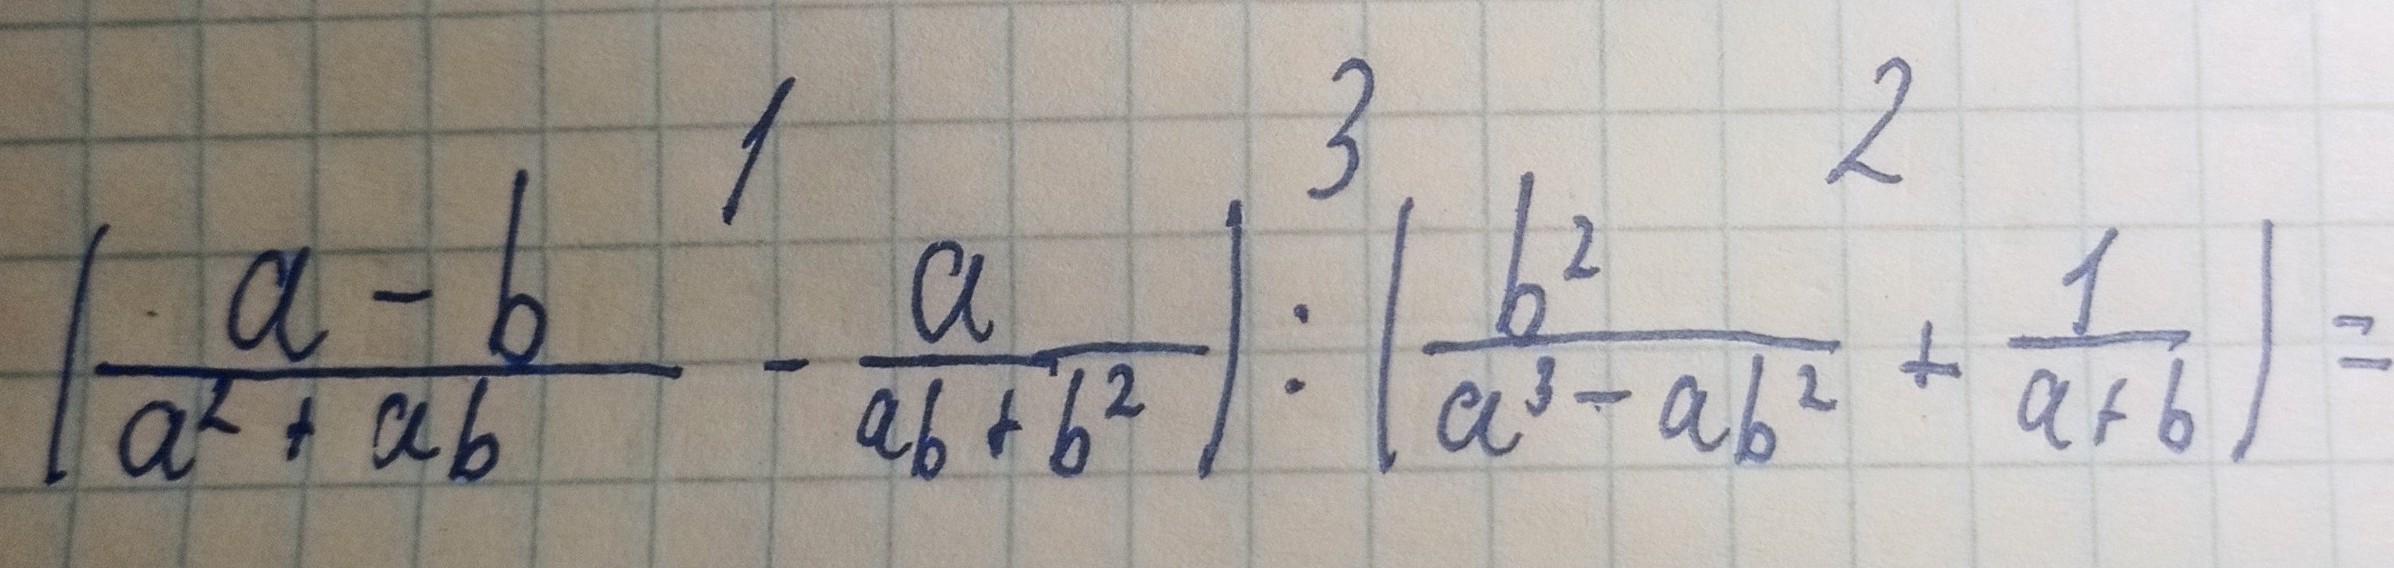 1 3 2
(a - b / a² + ab - a / ab + b²) : (b² / a³ - ab² + 1 / a + b) =